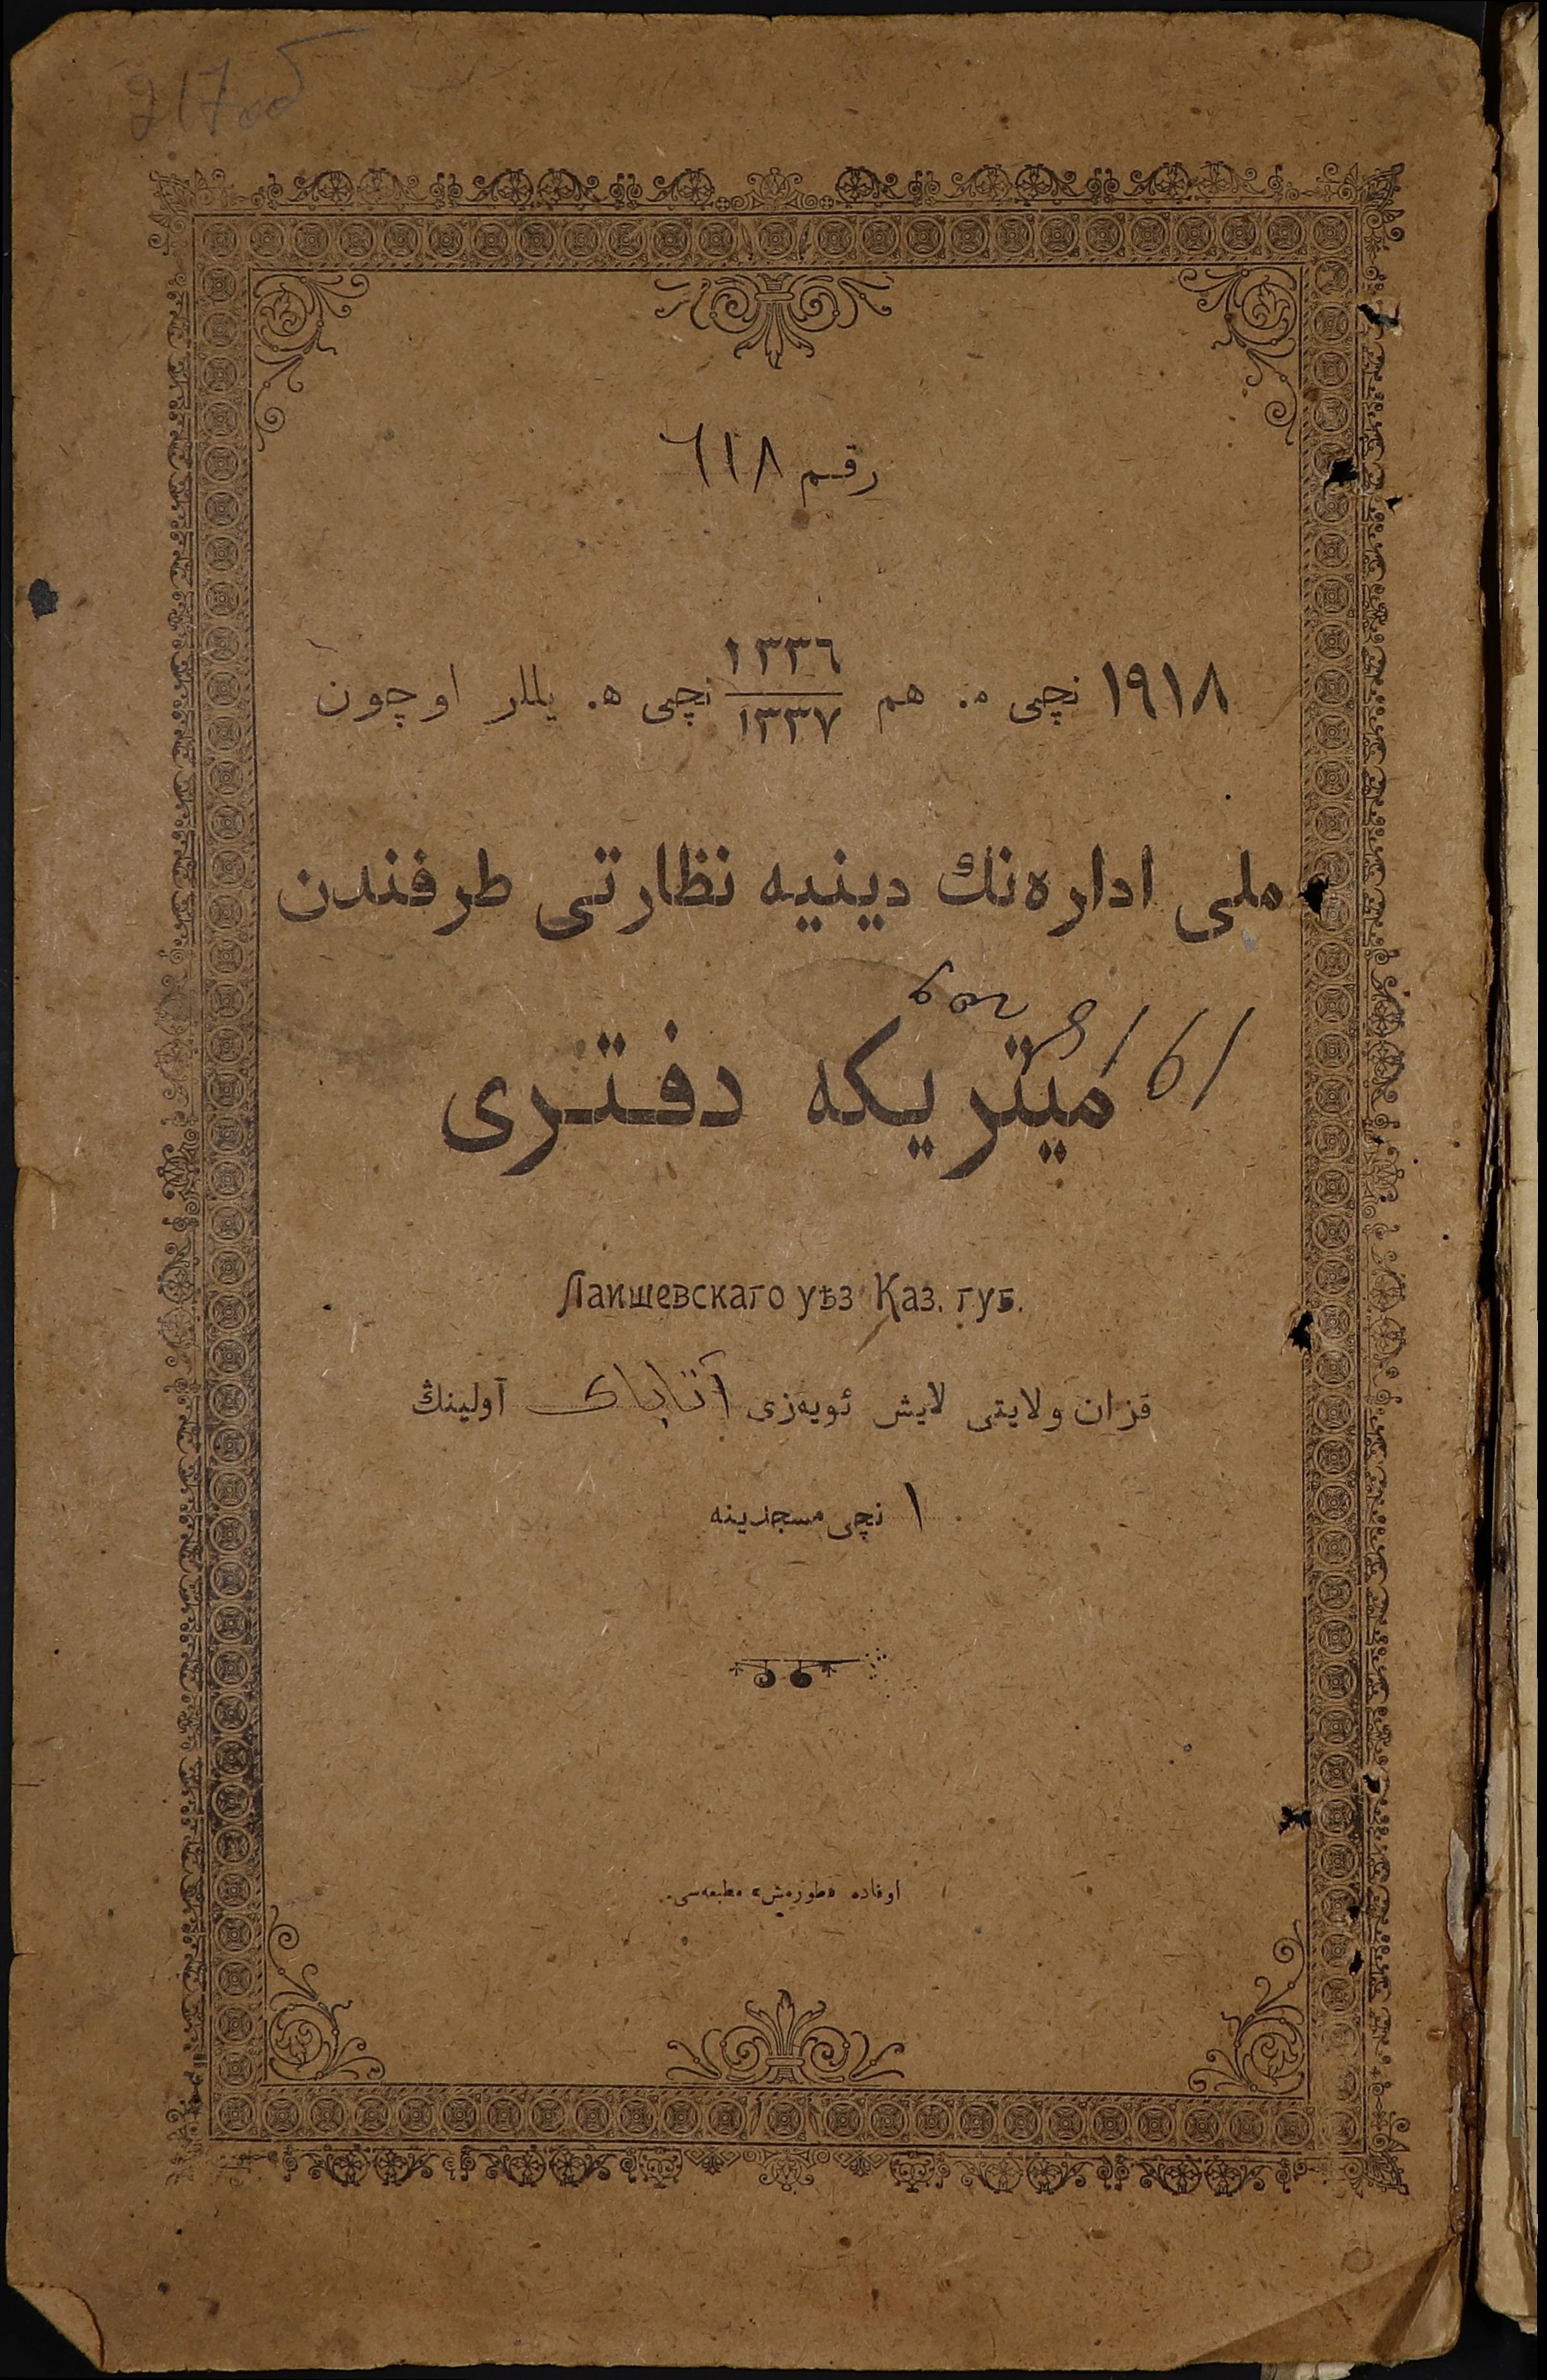 217об
رقم ٦١٨
١٩١٨ نچی م. هم ١٣٣٦/١٣٣٧ نچی ه. یللر اوچون
ملی اداره‌نك دینیه نظارتی طرفندن
میتریکه دفتری
Лаишевскаго уѣз Каз. губ.
قزان ولایتی لایش ئویه‌زی آتابای آولینڭ
١ نچی مسجدینه
اوفاده «طورمش» مطبعه‌سی.